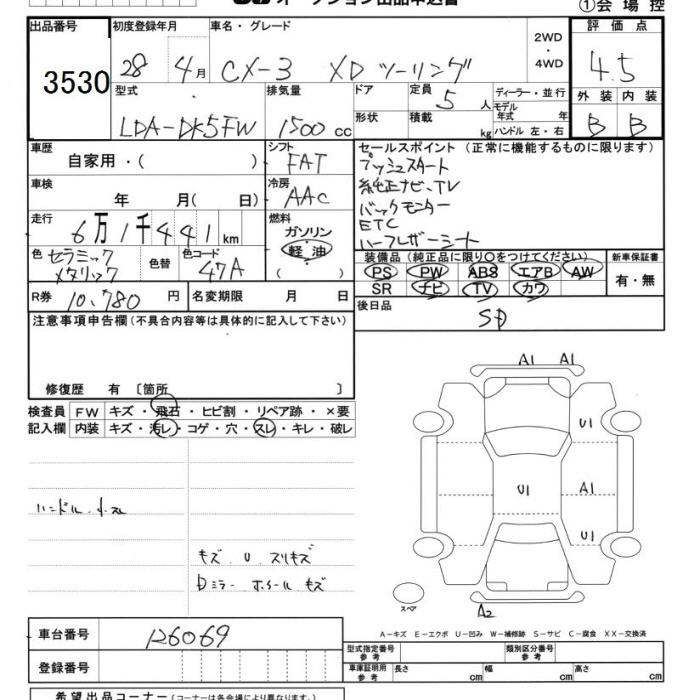 オークション出品申込書
①会場控
出品番号
3530
初度登録年月
28 4月
車名・グレード
CX-3 XD ツーリング
2WD
・
4WD
評価点
4.5
型式
LDA-DK5FW
排気量
1500 cc
ドア
定員
5 人
形状
積載
kg
ディーラー・並行
モデル
年式 年
ハンドル 左・右
外装 内装
B B
車歴
自家用・( )
シフト
FAT
車検
年 月( 日)
冷房
AAC
走行
6万1千441km
燃料
ガソリン
軽油
( )
色
セラミック
メタリック
色替
色コード
47A
R券 10,780 円
名変期限 月 日
セールスポイント (正常に機能するものに限ります)
プッシュスタート
純正ナビ、TV
バックモニター
ETC
ハーフレザーシート
装備品 (純正品に限り○をつけてください)
新車保証書
PS PW ABS エアB AW
SR ナビ TV カワ
有・無
後日品
注意事項申告欄(不具合内容等は具体的に記入して下さい)
修復歴 有 〔箇所 〕
検査員 FW キズ・飛石・ヒビ割・リペア跡・×要
記入欄 内装 キズ・汚レ・コゲ・穴・スレ・キレ・破レ
キズ U スリキズ
ミラー ホイール キズ
A1 A1
U1
U1 A1
U1
スペア
A2
A-キズ E-エクボ U-凹み W-補修跡 S-サビ C-腐食 XX-交換済
車台番号 126069
登録番号
型式指定番号
参考
類別区分番号
参考
車庫証明用
参考
長さ cm 幅 cm 高さ cm
希望出品コーナー(コーナーは各会場により異なります。)